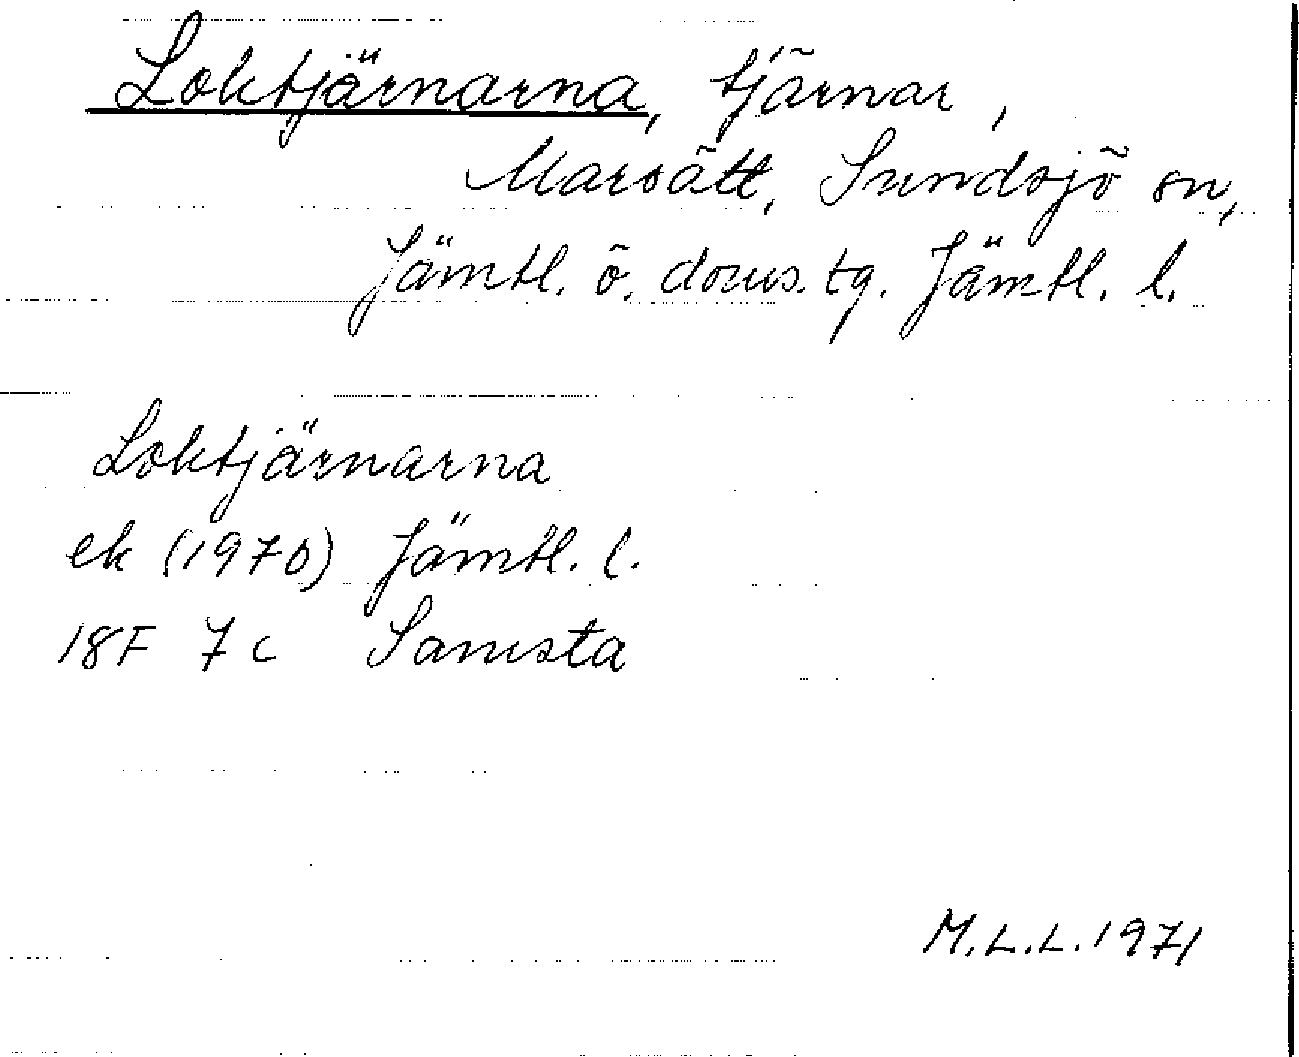 Loktjärnarna, tjärnar,
Marsätt, Sundsjö sn,
Jämtl. ö. doms. tg. Jämtl. l.
Loktjärnarna
ek (1970) Jämtl. l.
18F 7c Samsta
M.L.L. 1971